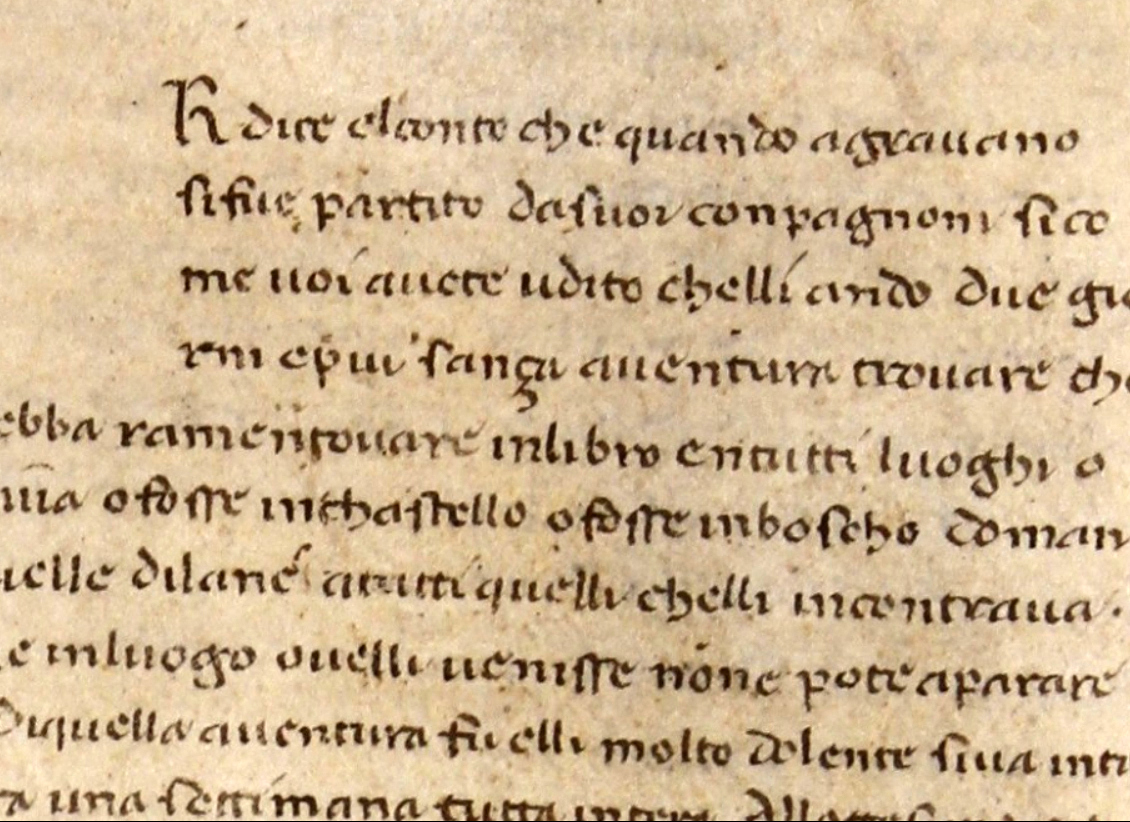 R dice el conte che quando agravano
si fue partito da suoi conpagnoni sico
me uoi auete udito chelli ando due gio
rni epiu sança auentura trouare che
ebba ramentouare in libro en tutti luoghi o
uia o fosse in chastello o fosse in boscho doman
uelle di lane a tutti quelli chelli incontraua.
e in luogo ouelli uenisse none pote aparare
Di quella auentura fu elli molto dolente si ua int
ra una settimana tutta intera